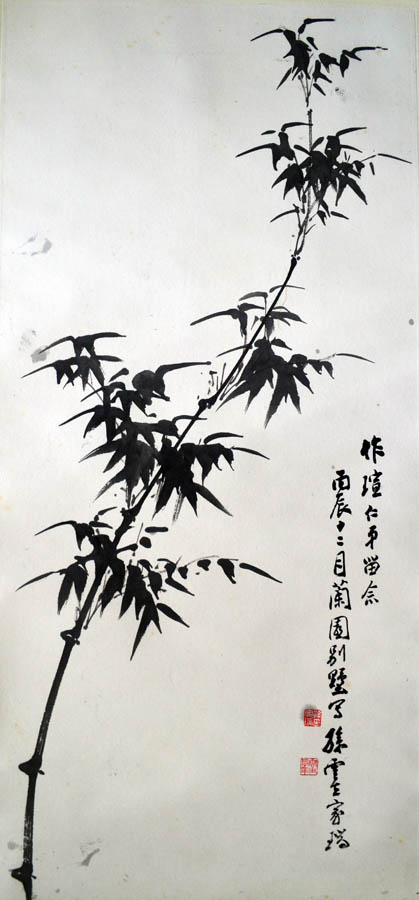 作瑄仁弟留念
丙辰十二月蘭園別墅写孫雲生家瑞